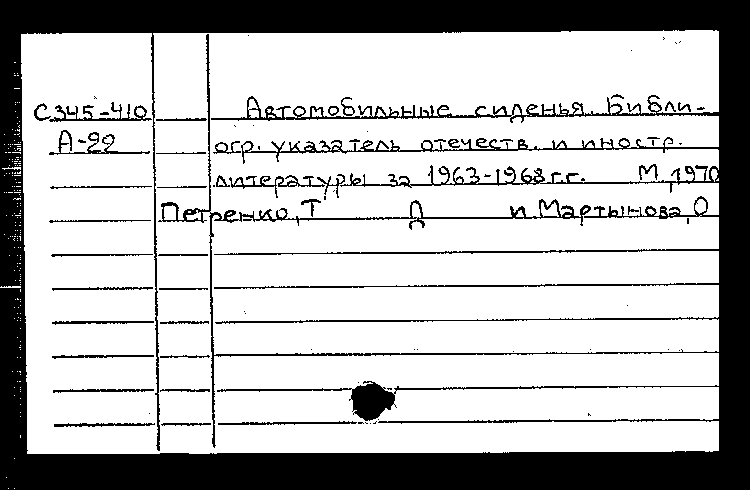 С345-410 Автомобильные сиденья. Библи-
А-22 огр. указатель отечеств. и иностр.
литературы за 1963-1968 г.г. М, 1970
Петренко, Т Д и Мартынова, О